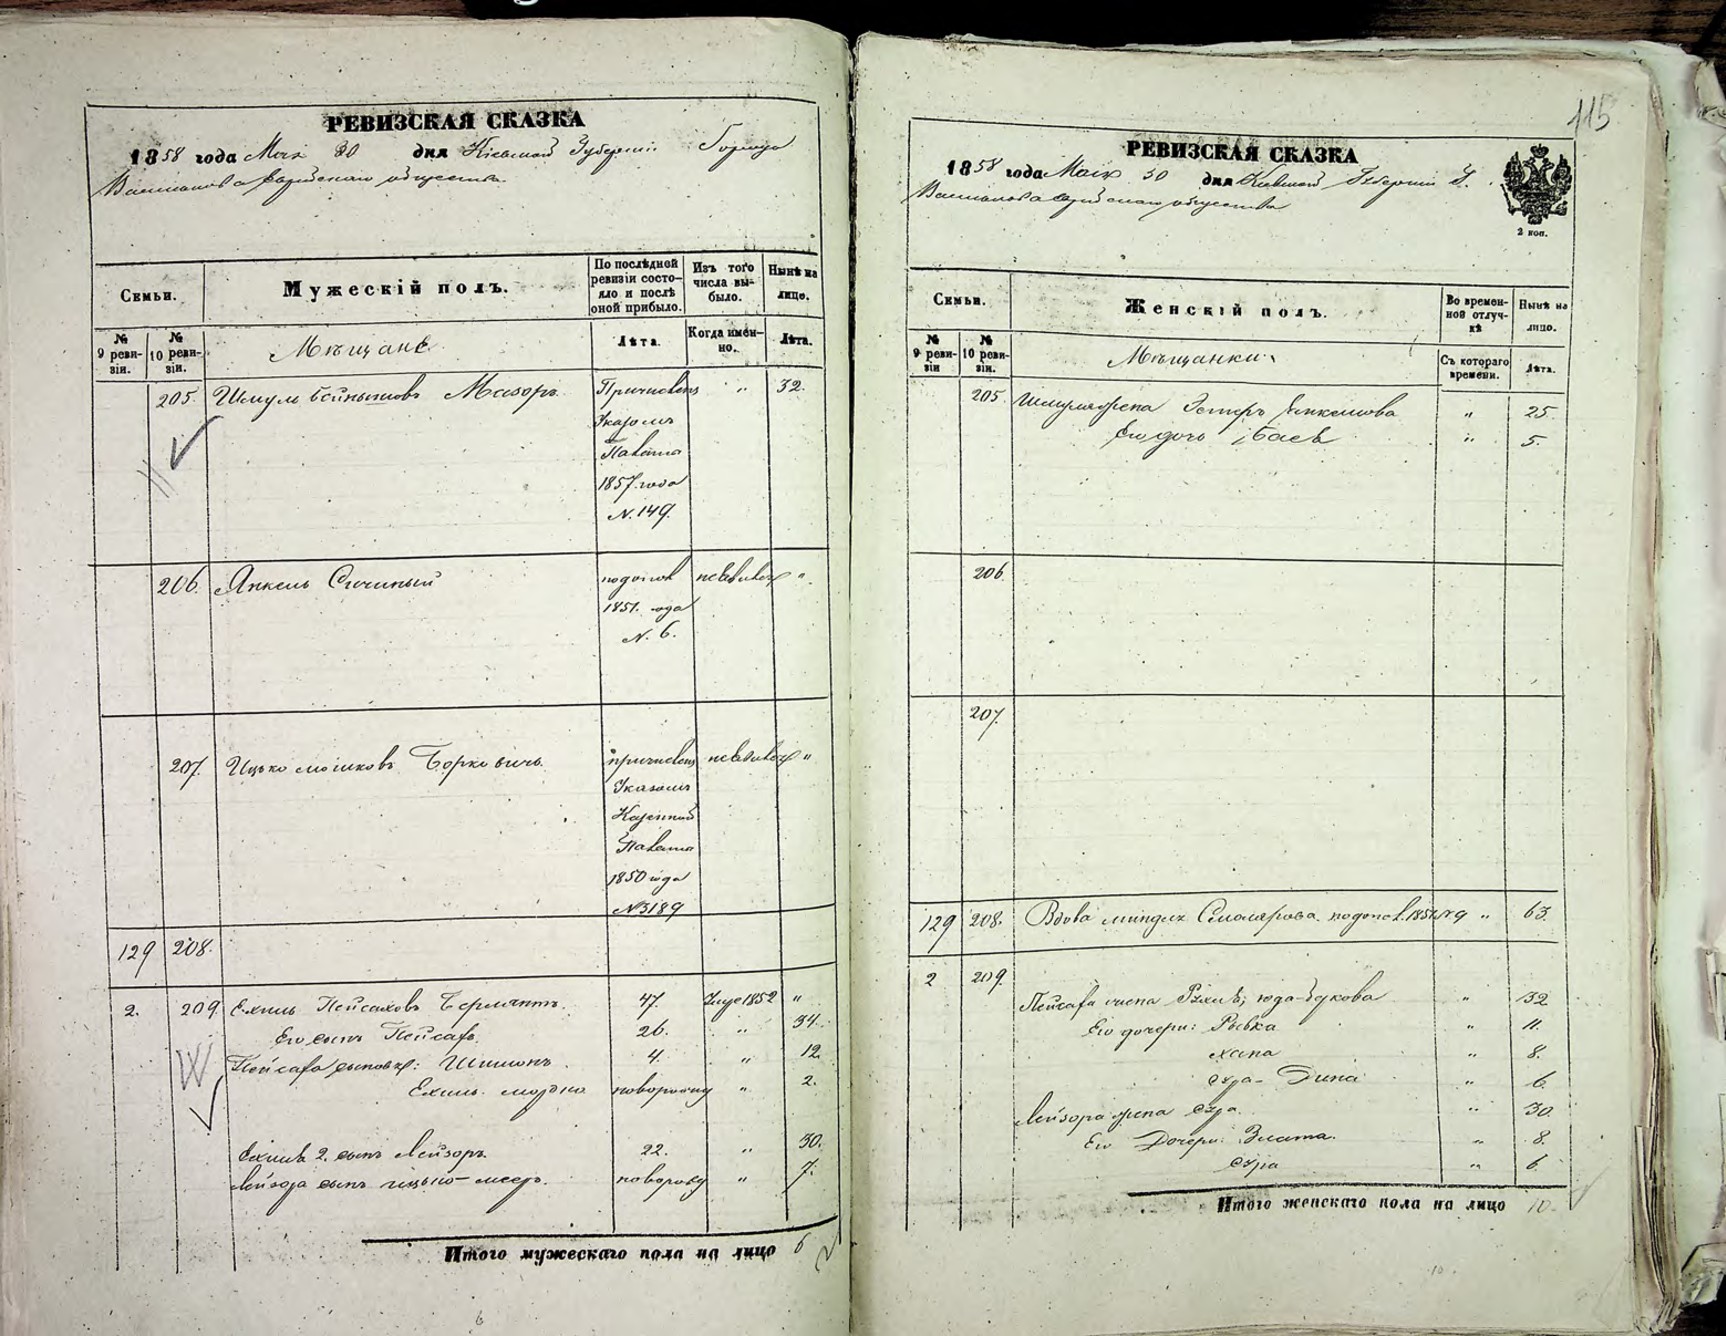 РЕВИЗСКАЯ СКАЗКА
1858 года Мая 30 дня Кіевской Губерніи Города
Василькова Еврейскаго общества
Семьи.
Мужескій полъ.
По послѣдней ревизіи состояло и послѣ оной прибыло.
Изъ того числа выбыло.
Нынѣ на лицо.
№ 9 ревизіи.
№ 10 ревизіи.
Мѣщане
Лѣта.
Когда именно.
Лѣта.
205. Шмуль Бейнышовъ Мазоръ Причисленъ " 32.
Указомъ
Палаты
1857 года
N. 149.
206. Янкель "
1851. года
N. 6.
207. Ицько Мошковъ Берковичъ причисленъ "
Указомъ
Казенной
Палаты
1850 года
N 3189
129 208.
2. 209. Ехиль Пейсаховъ 47. 1852 "
Его сынъ Пейсахъ 26. " 34.
Пейсаха сыновья: Шимонъ 4. " 12.
Ехиль Мордко новорожд " 2.
Ехиля 2. сынъ Лейзоръ 22. " 30.
Лейзора сынъ Ицько-Мееръ. новорожд " 7.
Итого мужескаго пола на лицо 6
115
РЕВИЗСКАЯ СКАЗКА
1858 года Мая 30 дня Кіевской Губерніи Г.
Василькова Еврейскаго общества
2 коп.
Семьи.
Женскій полъ.
Во временной отлучкѣ
Нынѣ на лицо.
№ 9 ревизіи
№ 10 ревизіи.
Мѣщанки
Съ котораго времени.
Лѣта.
205. Шмуля жена Эстеръ Янкелева " 25.
Его дочь Басѣ " 5.
206.
207.
129 208. Вдова Миндля Смолярова " 63.
2 209.
Пейсаха жена " 32
Его дочери: Рывка " 11.
Хана " 8.
Сура-Дина " 6.
Лейзора жена Сура " 30.
Его Дочери: Злата. " 8.
Сура " 6.
Итого женскаго пола на лицо 10.